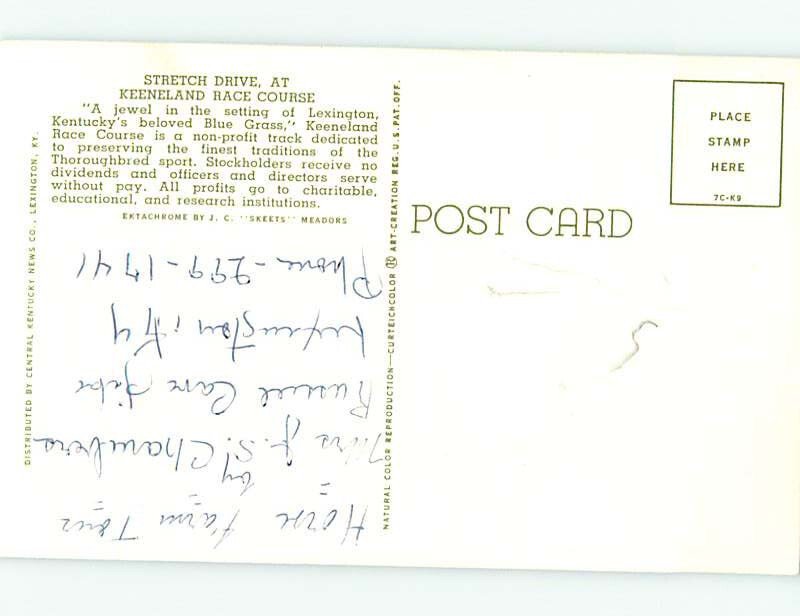 STRETCH DRIVE, AT
KEENELAND RACE COURSE
"A jewel in the setting of Lexington,
Kentucky's beloved Blue Grass," Keeneland
Race Course is a non-profit track dedicated
to preserving the finest traditions of the
Thoroughbred sport. Stockholders receive no
dividends and officers and directors serve
without pay. All profits go to charitable,
educational, and research institutions.
EKTACHROME BY J. C. "SKEETS" MEADORS
DISTRIBUTED BY CENTRAL KENTUCKY NEWS CO., LEXINGTON, KY.
NATURAL COLOR REPRODUCTION—CURTEICHCOLOR ® ART-CREATION REG. U.S. PAT. OFF.
POST CARD
PLACE
STAMP
HERE
7C-K9
Horse Farm Tour
by
Mrs J. S. Chambers
Russell Cave Pike
Lexington, Ky
Phone - 299-1741
5